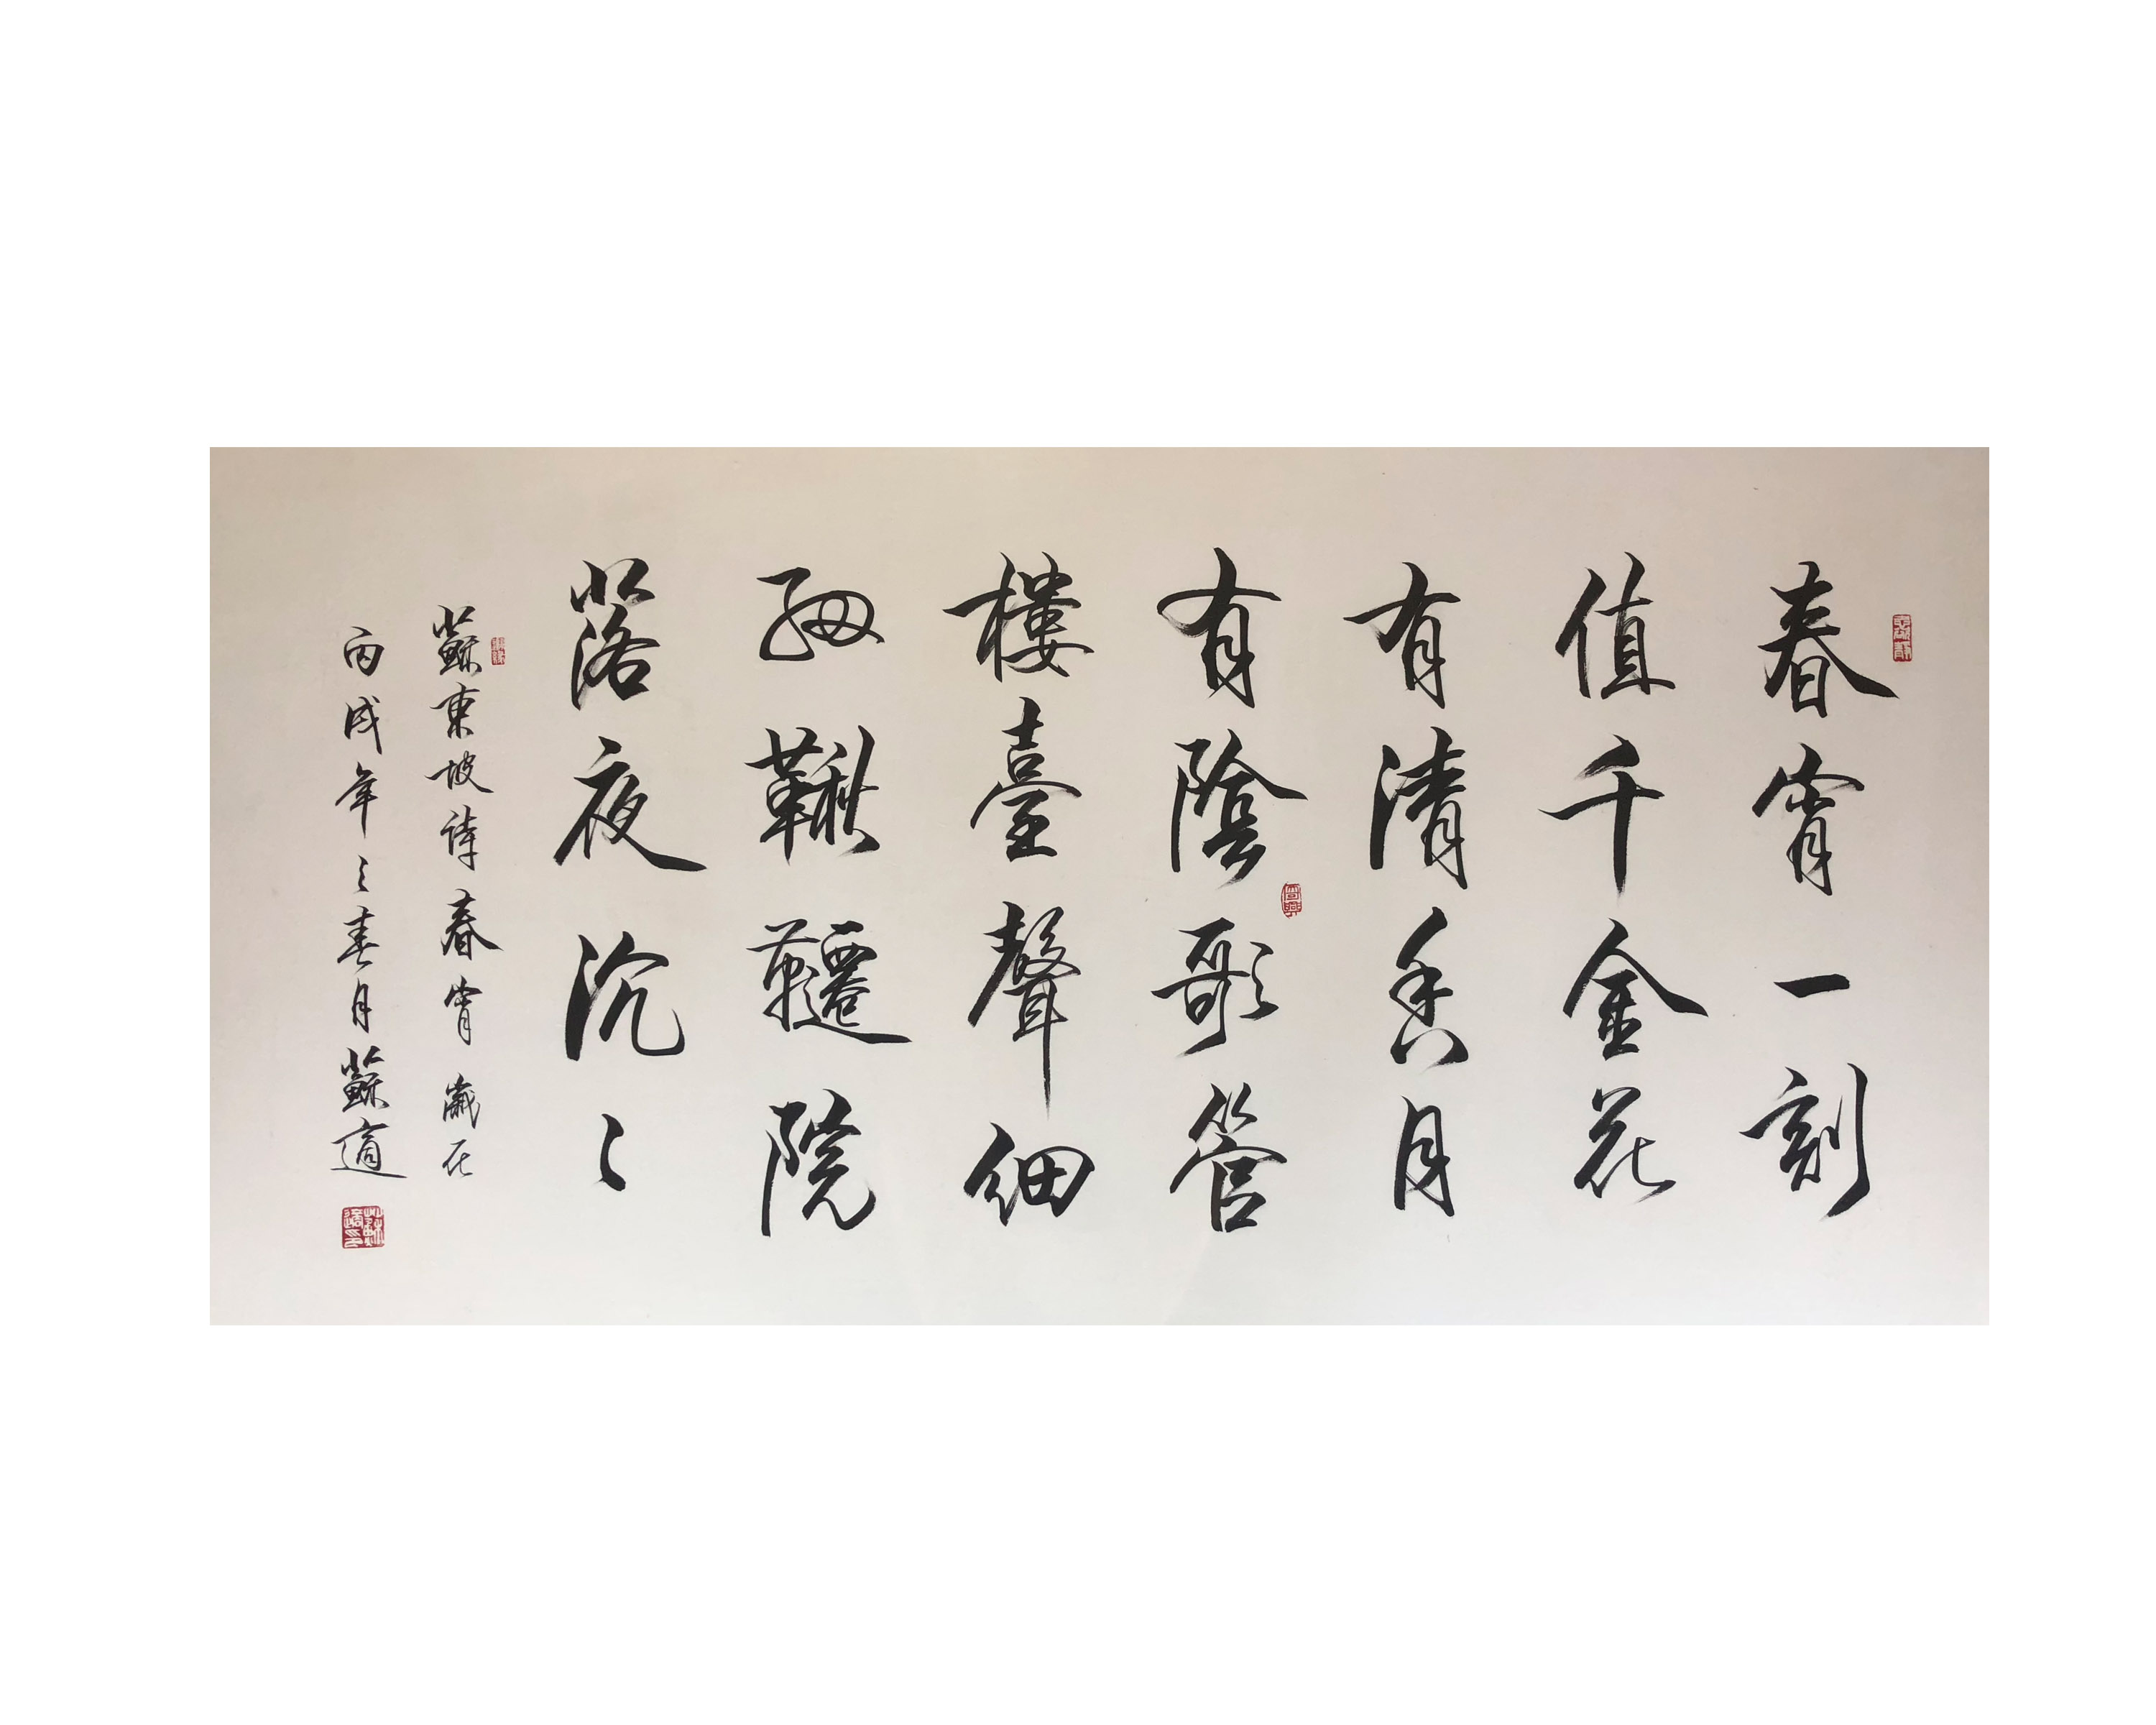 春宵一刻
值千金花
有清香月
有陰歌管
樓臺聲細
細鞦韆院
落夜沉〻
蘇東坡詩春宵 歲在
丙戌年之春月蘇適